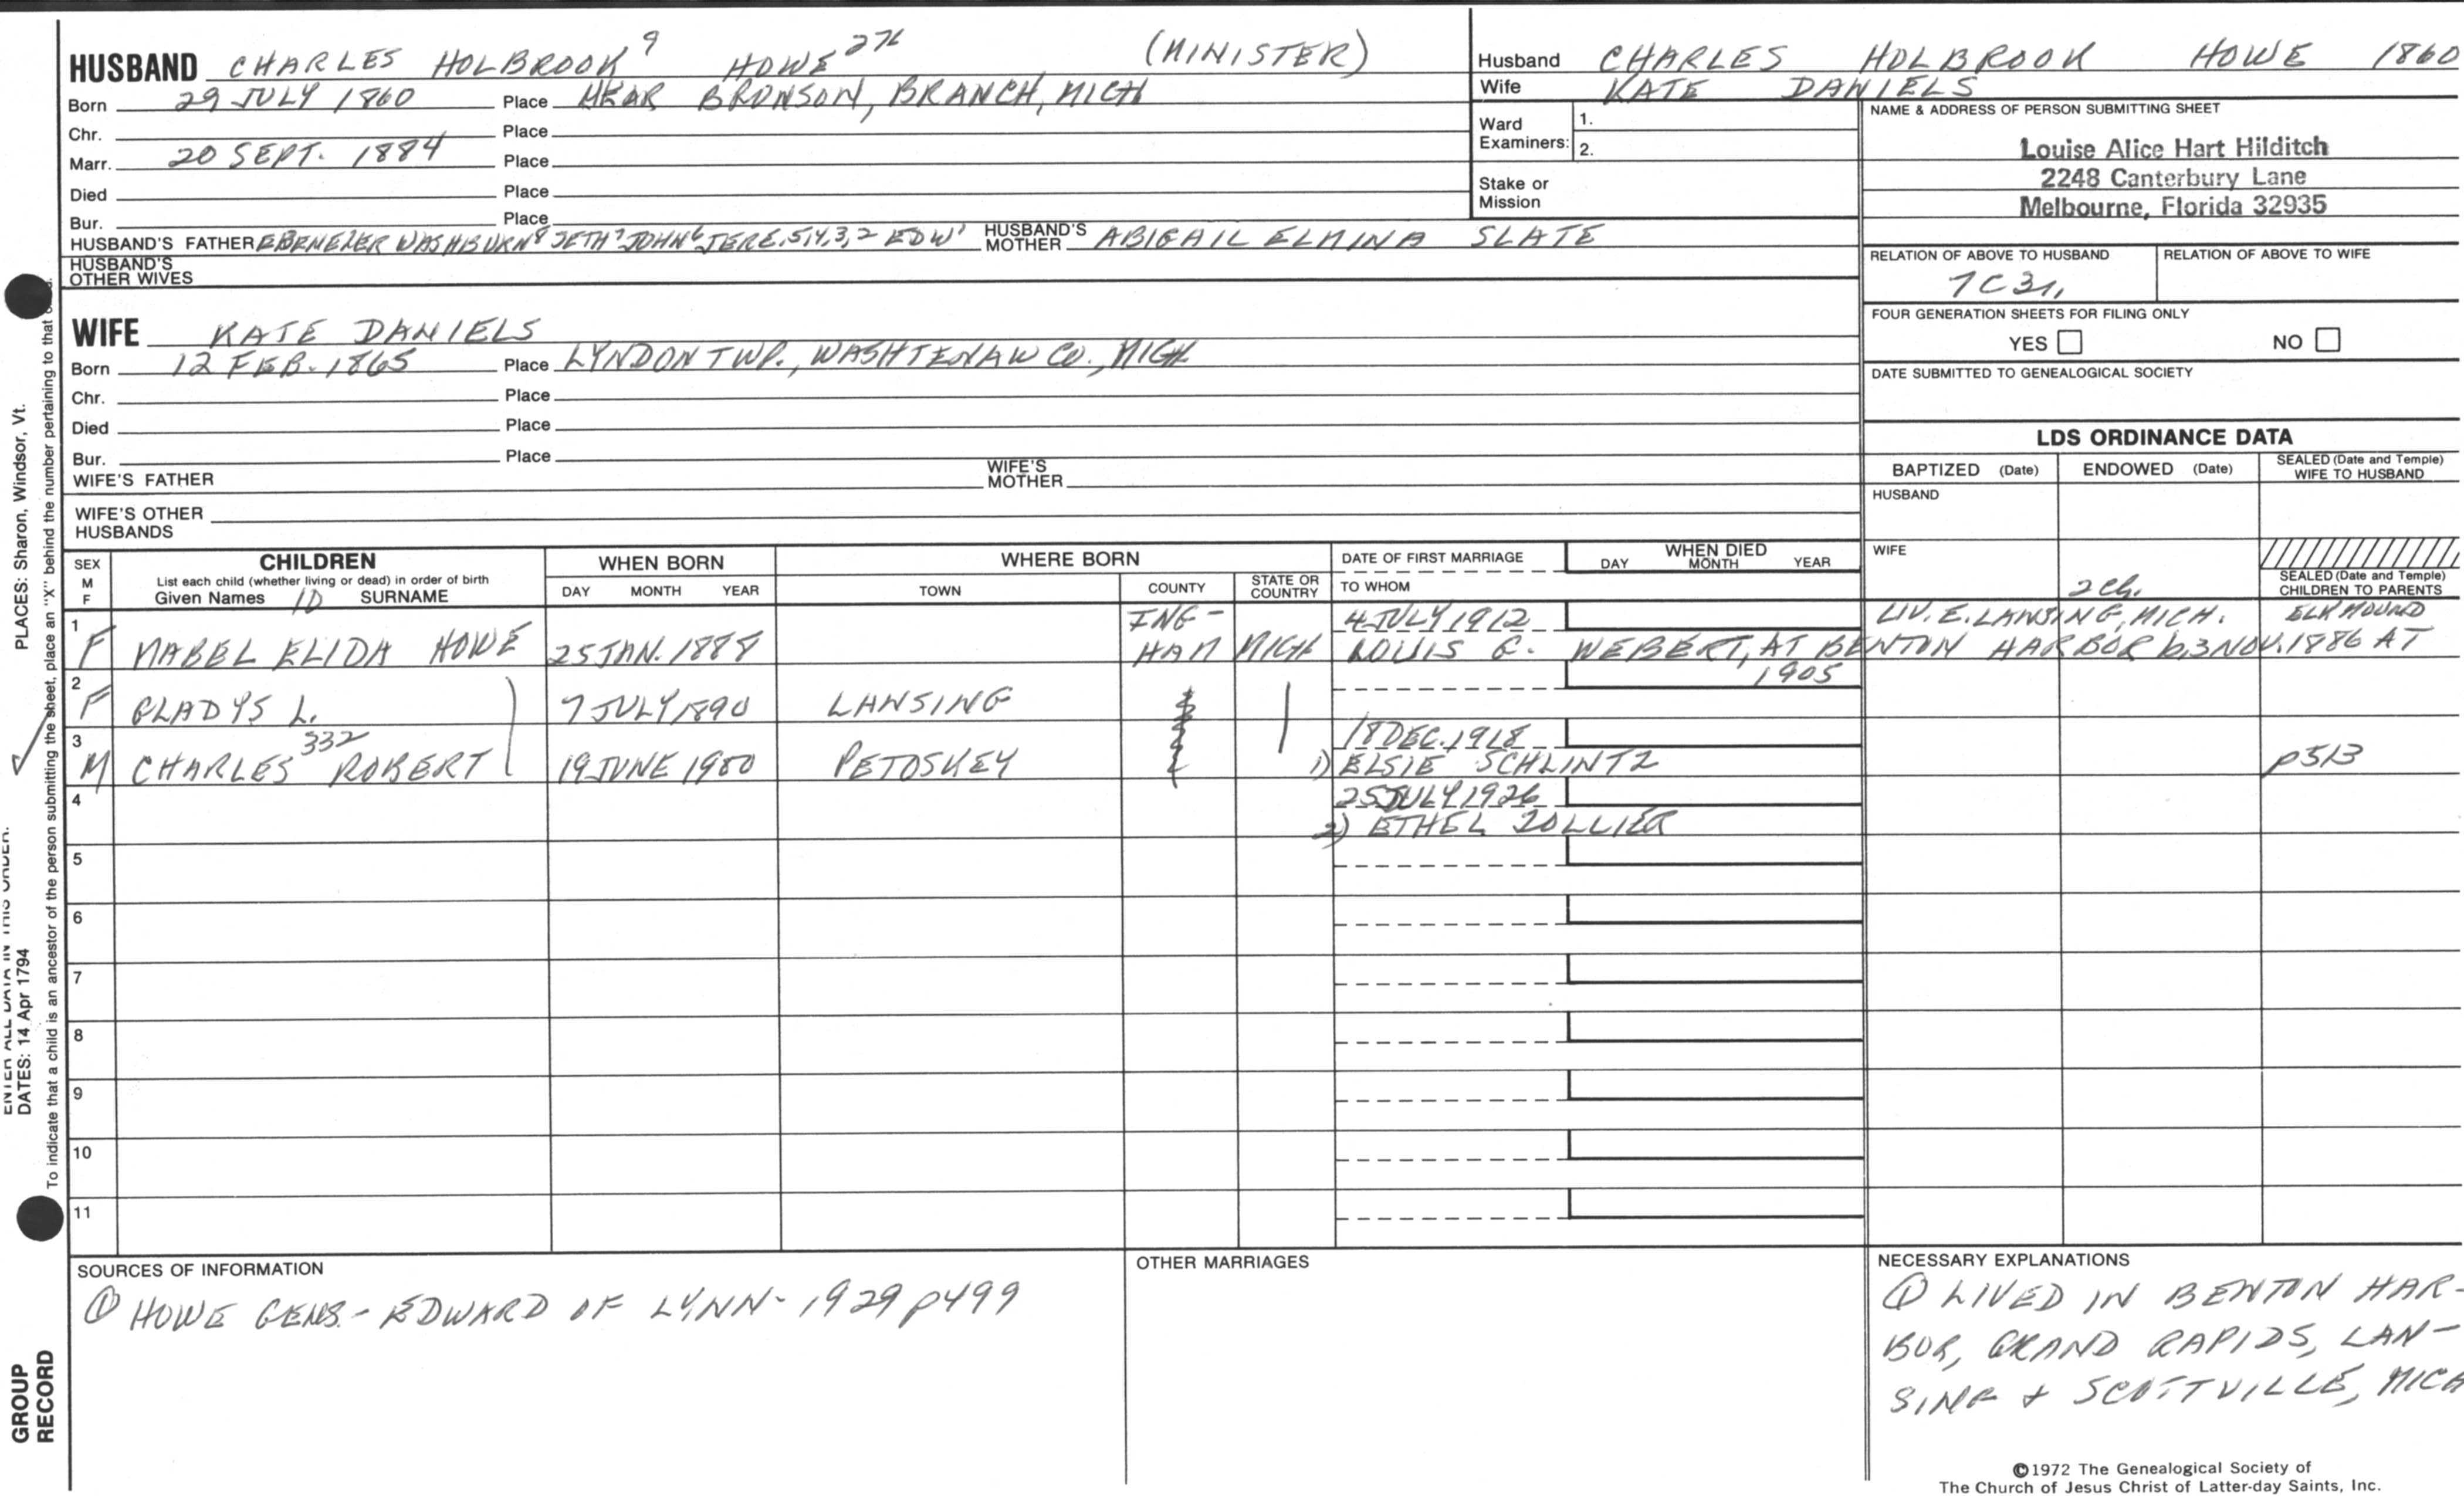 HUSBAND CHARLES HOLBROOK⁹ HOWE²⁷⁶ (MINISTER)
Born 29 JULY 1860 Place NEAR BRONSON, BRANCH, MICH
Chr. Place
Marr. 20 SEPT. 1884 Place
Died Place
Bur. Place
HUSBAND'S FATHER EBENEZER WASHBURN⁸ SETH⁷ JOHN⁶ JERE.5,4,3,2 EDW¹ HUSBAND'S MOTHER ABIGAIL ELMINA SLATE
HUSBAND'S OTHER WIVES
Husband CHARLES HOLBROOK HOWE 1860
Wife KATE DANIELS
Ward Examiners: 1.
2.
Stake or Mission
NAME & ADDRESS OF PERSON SUBMITTING SHEET
Louise Alice Hart Hilditch
2248 Canterbury Lane
Melbourne, Florida 32935
RELATION OF ABOVE TO HUSBAND RELATION OF ABOVE TO WIFE
7C3r,
FOUR GENERATION SHEETS FOR FILING ONLY
YES NO
DATE SUBMITTED TO GENEALOGICAL SOCIETY
WIFE KATE DANIELS
Born 12 FEB. 1865 Place LYNDON TWP., WASHTENAW CO., MICH
Chr. Place
Died Place
Bur. Place
WIFE'S FATHER WIFE'S MOTHER
WIFE'S OTHER HUSBANDS
LDS ORDINANCE DATA
BAPTIZED (Date) ENDOWED (Date) SEALED (Date and Temple) WIFE TO HUSBAND
HUSBAND
WIFE
2 Ch.
SEALED (Date and Temple) CHILDREN TO PARENTS
SEX M F CHILDREN WHEN BORN WHERE BORN DATE OF FIRST MARRIAGE WHEN DIED
List each child (whether living or dead) in order of birth
Given Names 10 SURNAME DAY MONTH YEAR TOWN COUNTY STATE OR COUNTRY TO WHOM DAY MONTH YEAR
1 ING- 4 JULY 1912 LIV. E. LANSING, MICH. ELK MOUND
F MABEL ELIDA HOWE 25 JAN. 1888 HAM MICH LOUIS G. WEBERT, AT BENTON HARBOR b. 3 NOV. 1886 AT
2 1905
F GLADYS L. 7 JULY 1890 LANSING
3 18 DEC. 1918
M CHARLES³³² ROBERT 19 JUNE 1900 PETOSKEY 1) ELSIE SCHLINTZ p513
4 25 JULY 1926
2) ETHEL ZOLLIER
5
6
7
8
9
10
11
SOURCES OF INFORMATION
① HOWE GENS. - EDWARD OF LYNN - 1929 p499
OTHER MARRIAGES
NECESSARY EXPLANATIONS
① LIVED IN BENTON HAR-
BOR, GRAND RAPIDS, LAN-
SING + SCOTTVILLE, MICH
©1972 The Genealogical Society of
The Church of Jesus Christ of Latter-day Saints, Inc.
PLACES: Sharon, Windsor, Vt.
ENTER ALL DATA IN THIS ORDER:
DATES: 14 Apr 1794
To indicate that a child is an ancestor of the person submitting the sheet, place an "X" behind the number pertaining to that
GROUP
RECORD